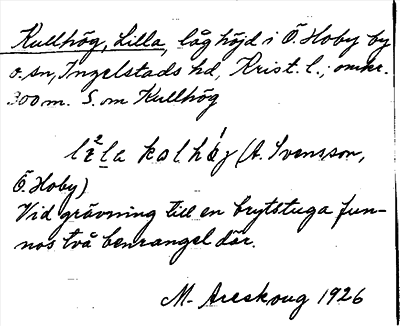 Kullhög, Lilla, låg höjd i Ö. Hoby by
o. sn, Ingelstads hd, Krist. l.; omkr.
300 m. S. om Kullhög
(A. Svensson,
Ö. Hoby)
Vid grävning till en brytstuga fun-
nos två benrangel där.
M. Areskoug 1926